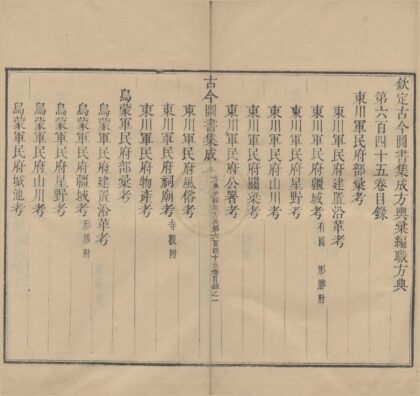 欽定古今圖書集成方輿彙編職方典
第六百四十五卷目錄
東川軍民府部彙考
東川軍民府建置沿革考
東川軍民府疆域考 有圖 形勝附
東川軍民府星野考
東川軍民府山川考
東川軍民府關梁考
東川軍民府公署考
古今圖書集成
東川軍民府風俗考
東川軍民府祠廟考 寺觀附
東川軍民府物產考
烏蒙軍民府部彙考
烏蒙軍民府建置沿革考
烏蒙軍民府疆域考 形勝附
烏蒙軍民府星野考
烏蒙軍民府山川考
烏蒙軍民府城池考